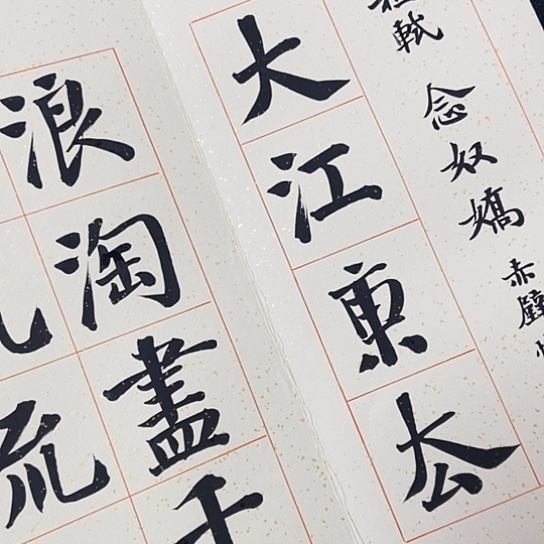 軾 念奴嬌 赤壁
大江東去
浪淘盡千
流